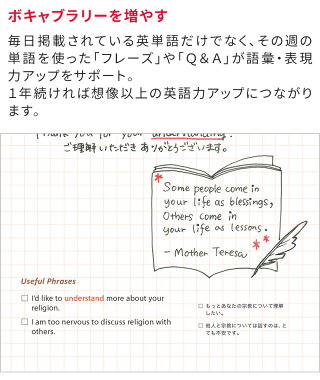 ボキャブラリーを増やす
毎日掲載されている英単語だけでなく、その週の
単語を使った「フレーズ」や「Q&A」が語彙・表現
力アップをサポート。
1年続ければ想像以上の英語力アップにつながり
ます。
Thank you for your understanding.
ご理解いただきありがとうございます。
Some people come in
your life as blessings,
Others come in
your life as lessons.
- Mother Teresa
Useful Phrases
I'd like to understand more about your
religion.
I am too nervous to discuss religion with
others.
もっとあなたの宗教について理解
したい。
他人と宗教については話すのは、と
ても不安です。